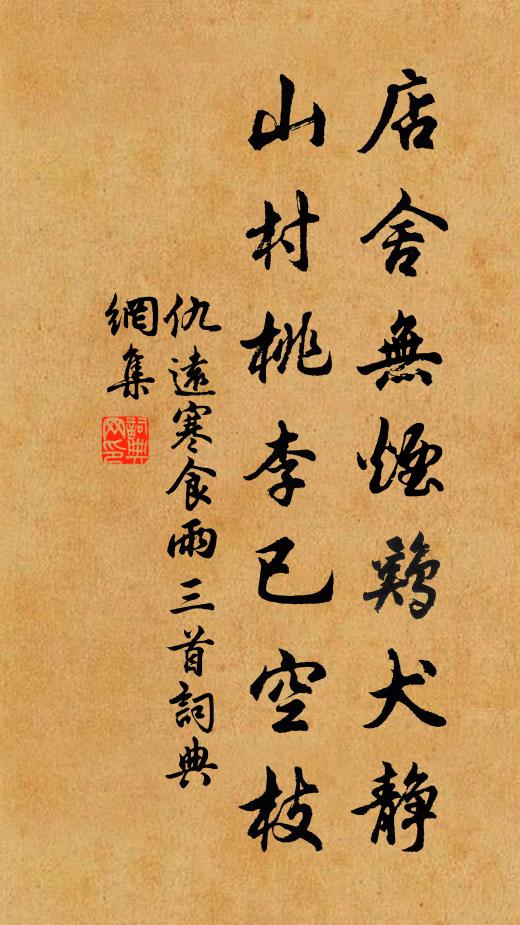 店舍無煙鷄犬静
山村桃李已空枝
仇遠寒食雨三首詞典
網集
詞典
网印